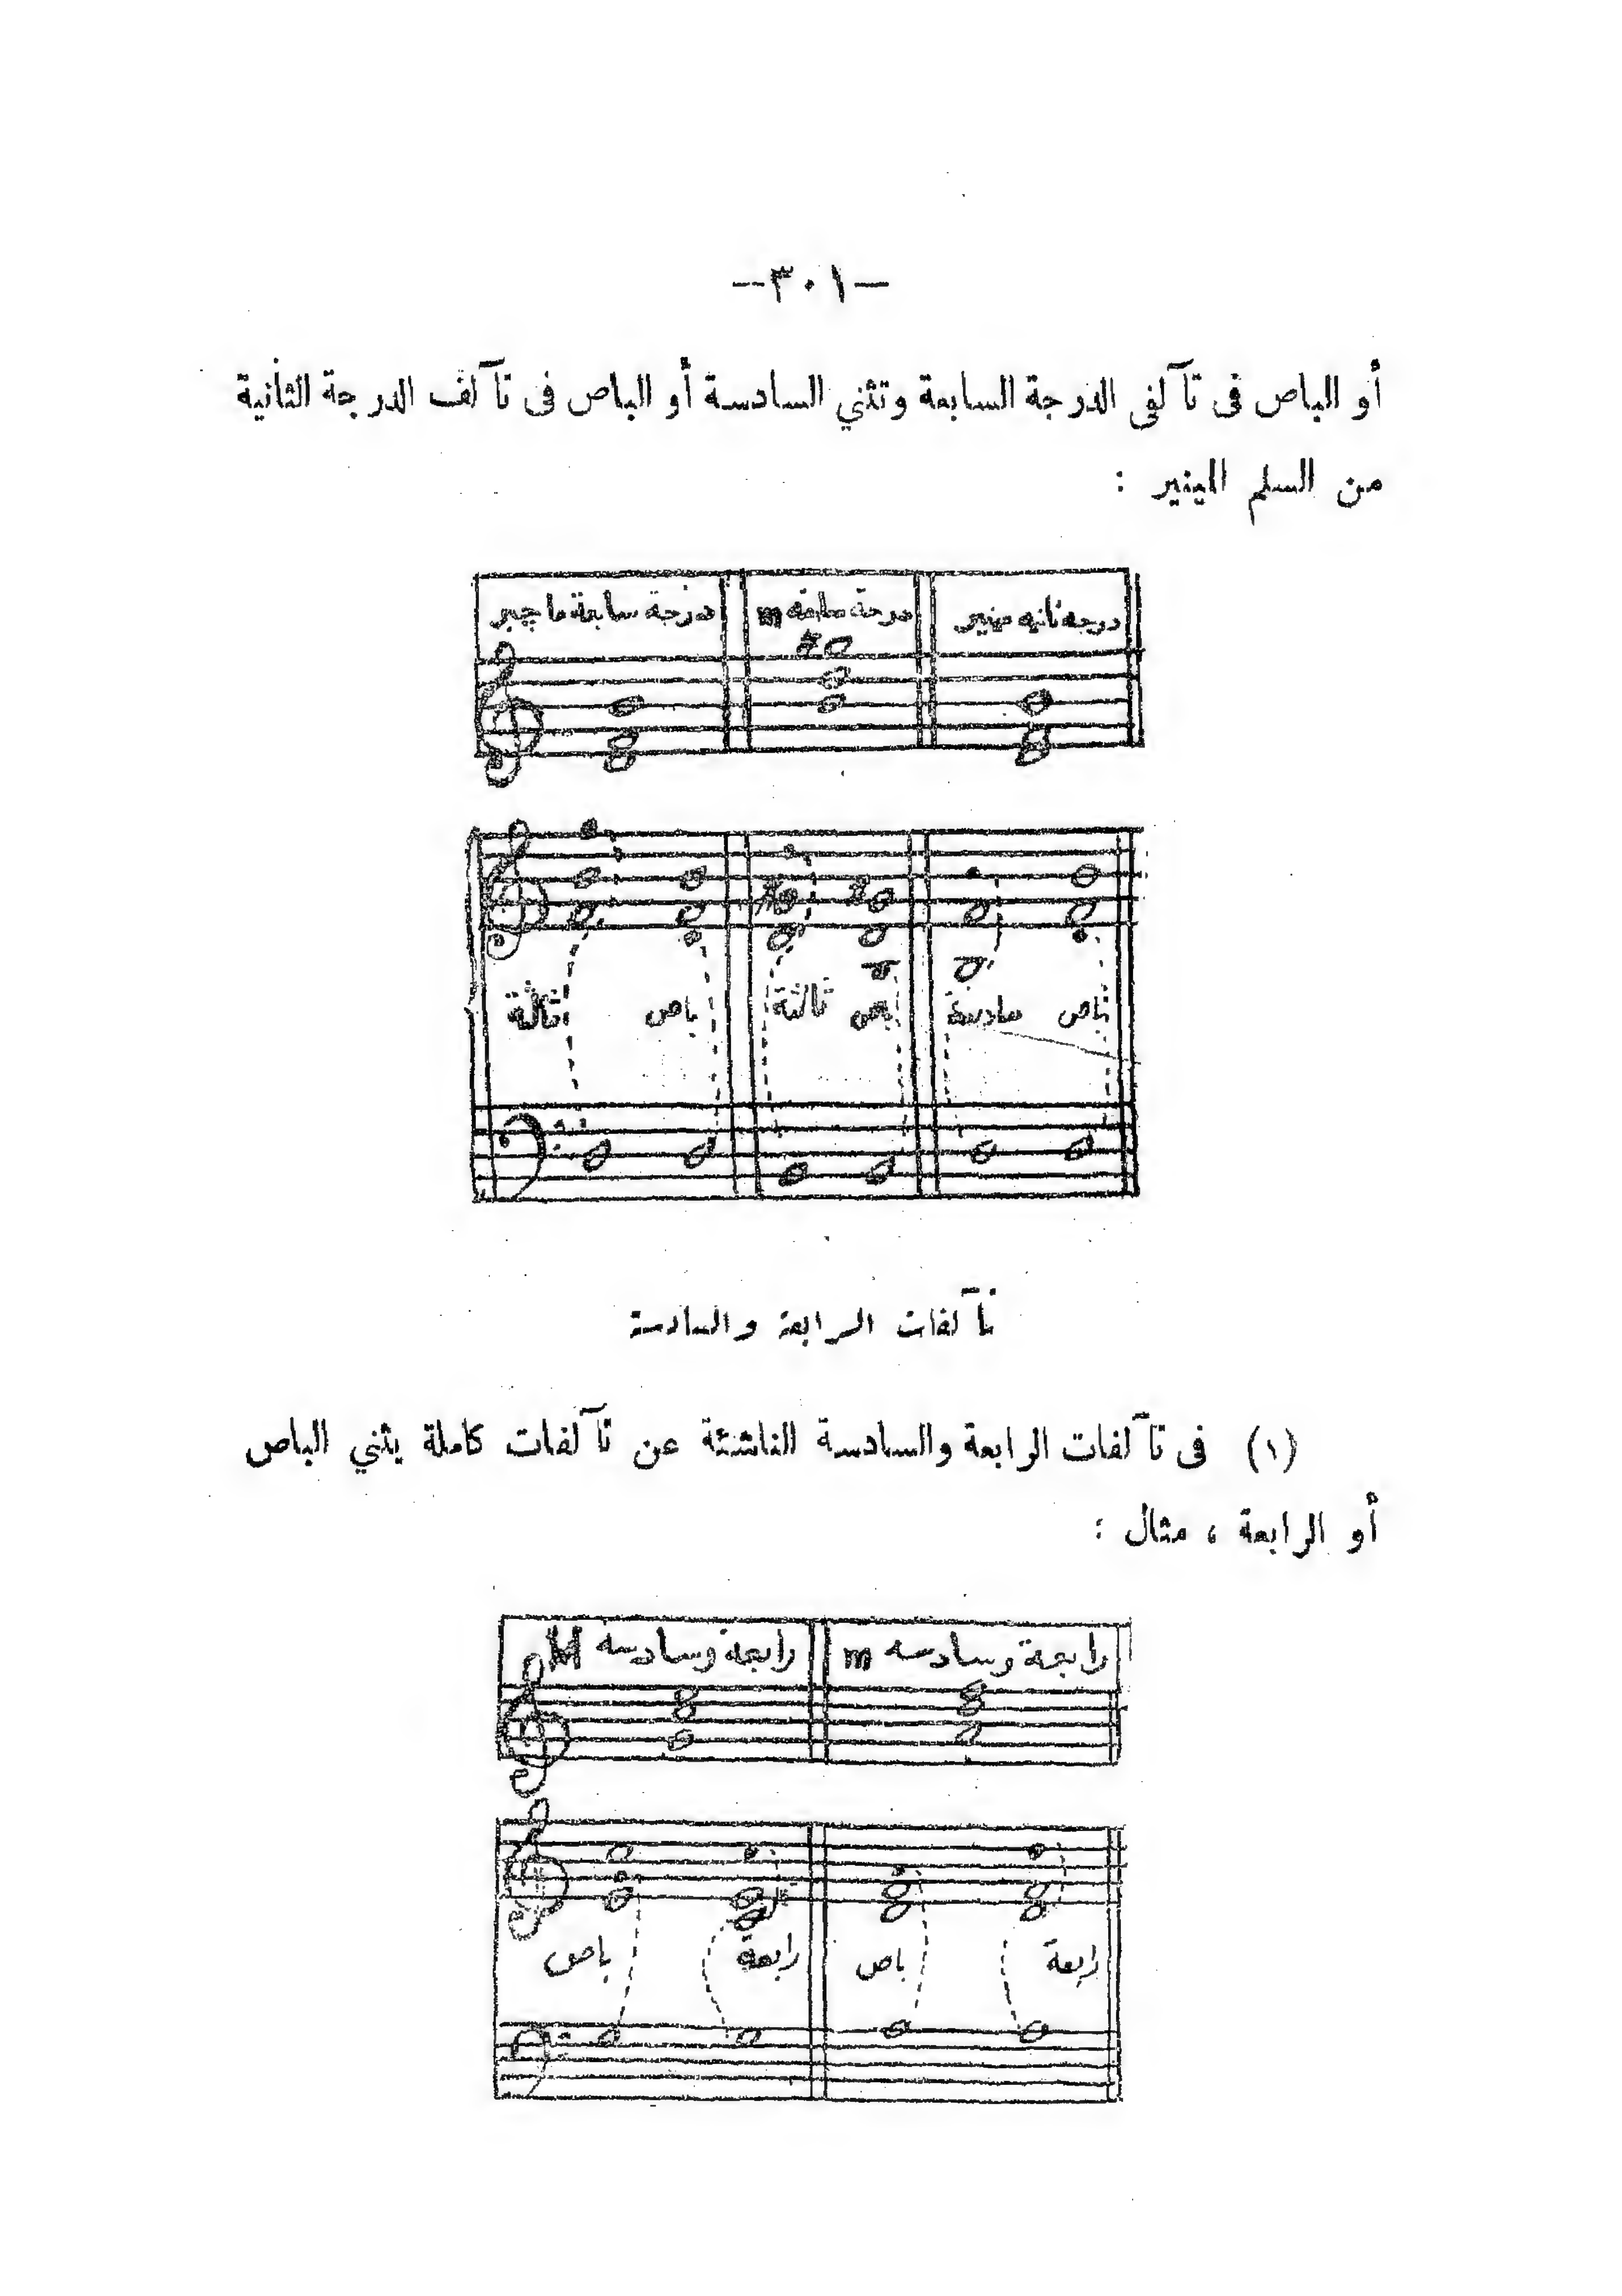 —٣٠١—
أو الباص فى تآلفى الدرجة السابعة وتثني السادسة أو الباص فى تآلف الدرجة الثانية
من السلم المينير :
درجة سابعة ماجير
درجة سابعة m
درجه ثانيه مينير
ثالثة
باص
ثالثة
باص
سادسة
باص
تآلفات الرابعة والسادسة
(١) فى تآلفات الرابعة والسادسة الناشئة عن تآلفات كاملة يثني الباص
أو الرابعة ، مثال :
رابعة وسادسه M
رابعة وسادسه m
باص
رابعة
باص
رابعة